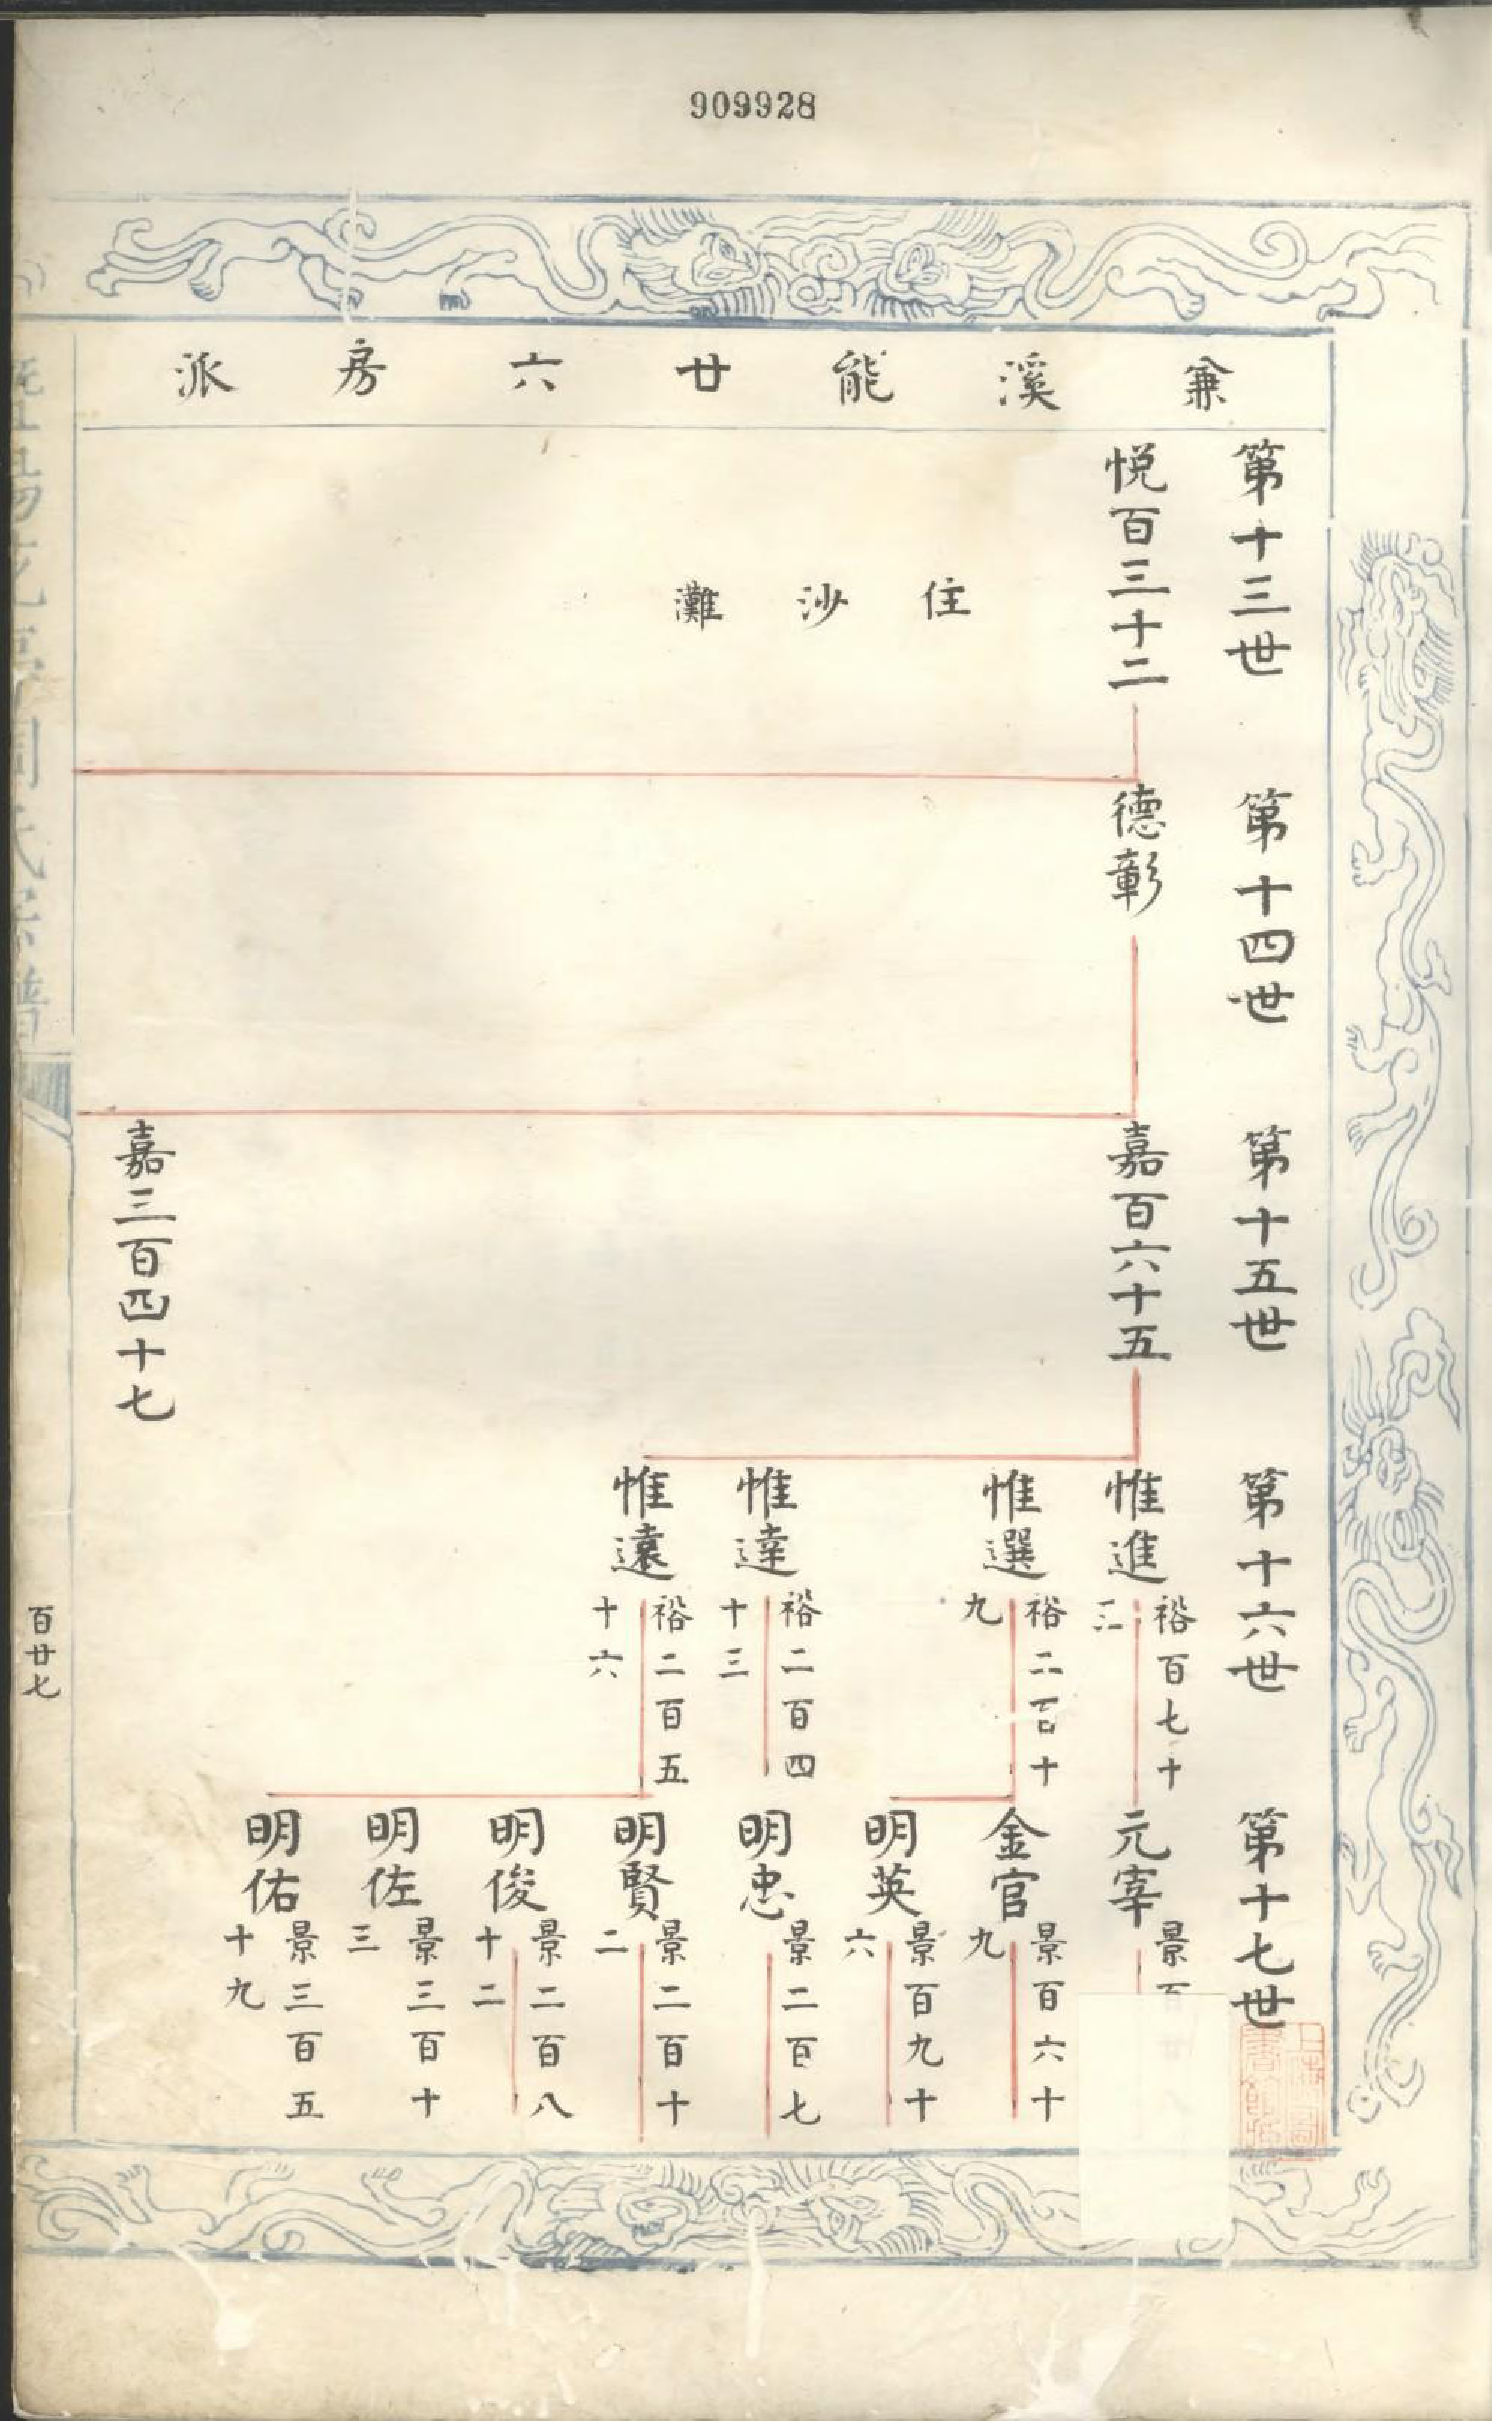 909928
兼溪能廿六房派
第十三世
悦百三十二
住沙灘
第十四世
德彰
第十五世
嘉百六十五
嘉三百四十七
第十六世
惟進
裕百七十
二
惟選
裕二百十
九
惟達
裕二百四
十三
惟遠
裕二百五
十六
第十七世
元宰
景百
金官
景百六十
九
明英
景百九十
六
明忠
景二百七
明賢
景二百十
二
明俊
景二百八
十二
明佐
景三百十
三
明佑
景三百五
十九
百廿七